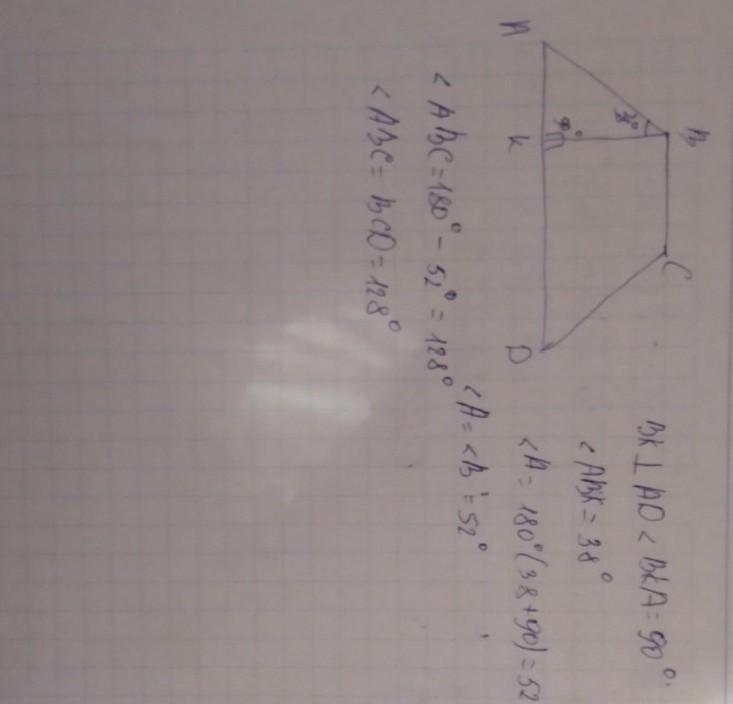 A
B
C
D
K
38°
90°
BK ⊥ AD < BKA = 90°.
< ABK = 38°
< A = 180°(38+90) = 52
< A = < B = 52°
< ABC = 180° - 52° = 128°
< ABC = BCD = 128°